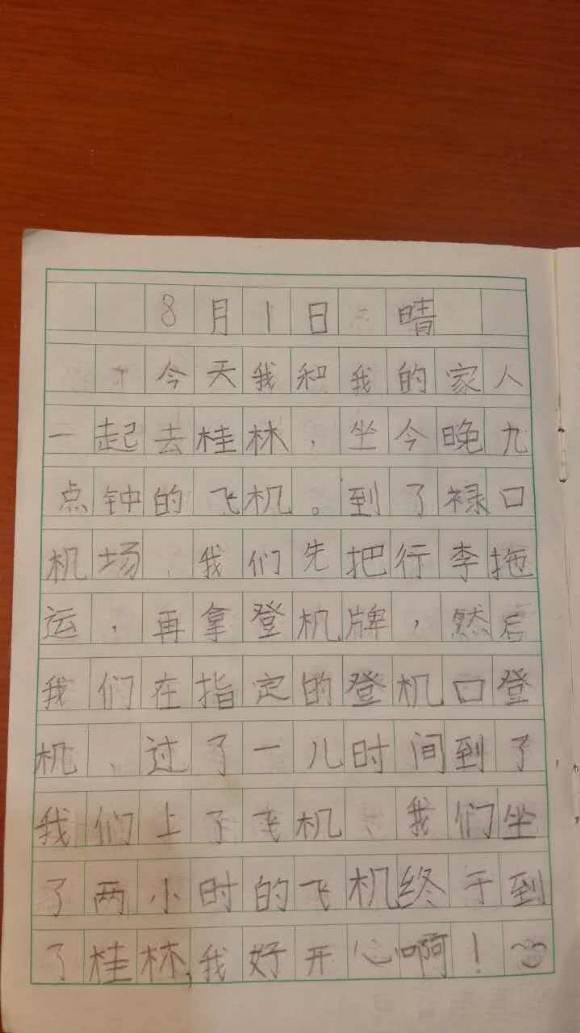 8月1日 晴
今天我和我的家人
一起去桂林，坐今晚九
点钟的飞机。到了禄口
机场、我们先把行李拖
运，再拿登机牌，然后
我们在指定的登机口登
机、过了一儿时间到了，
我们上了飞机、我们坐
了两小时的飞机终于到
了桂林,我好开心啊！